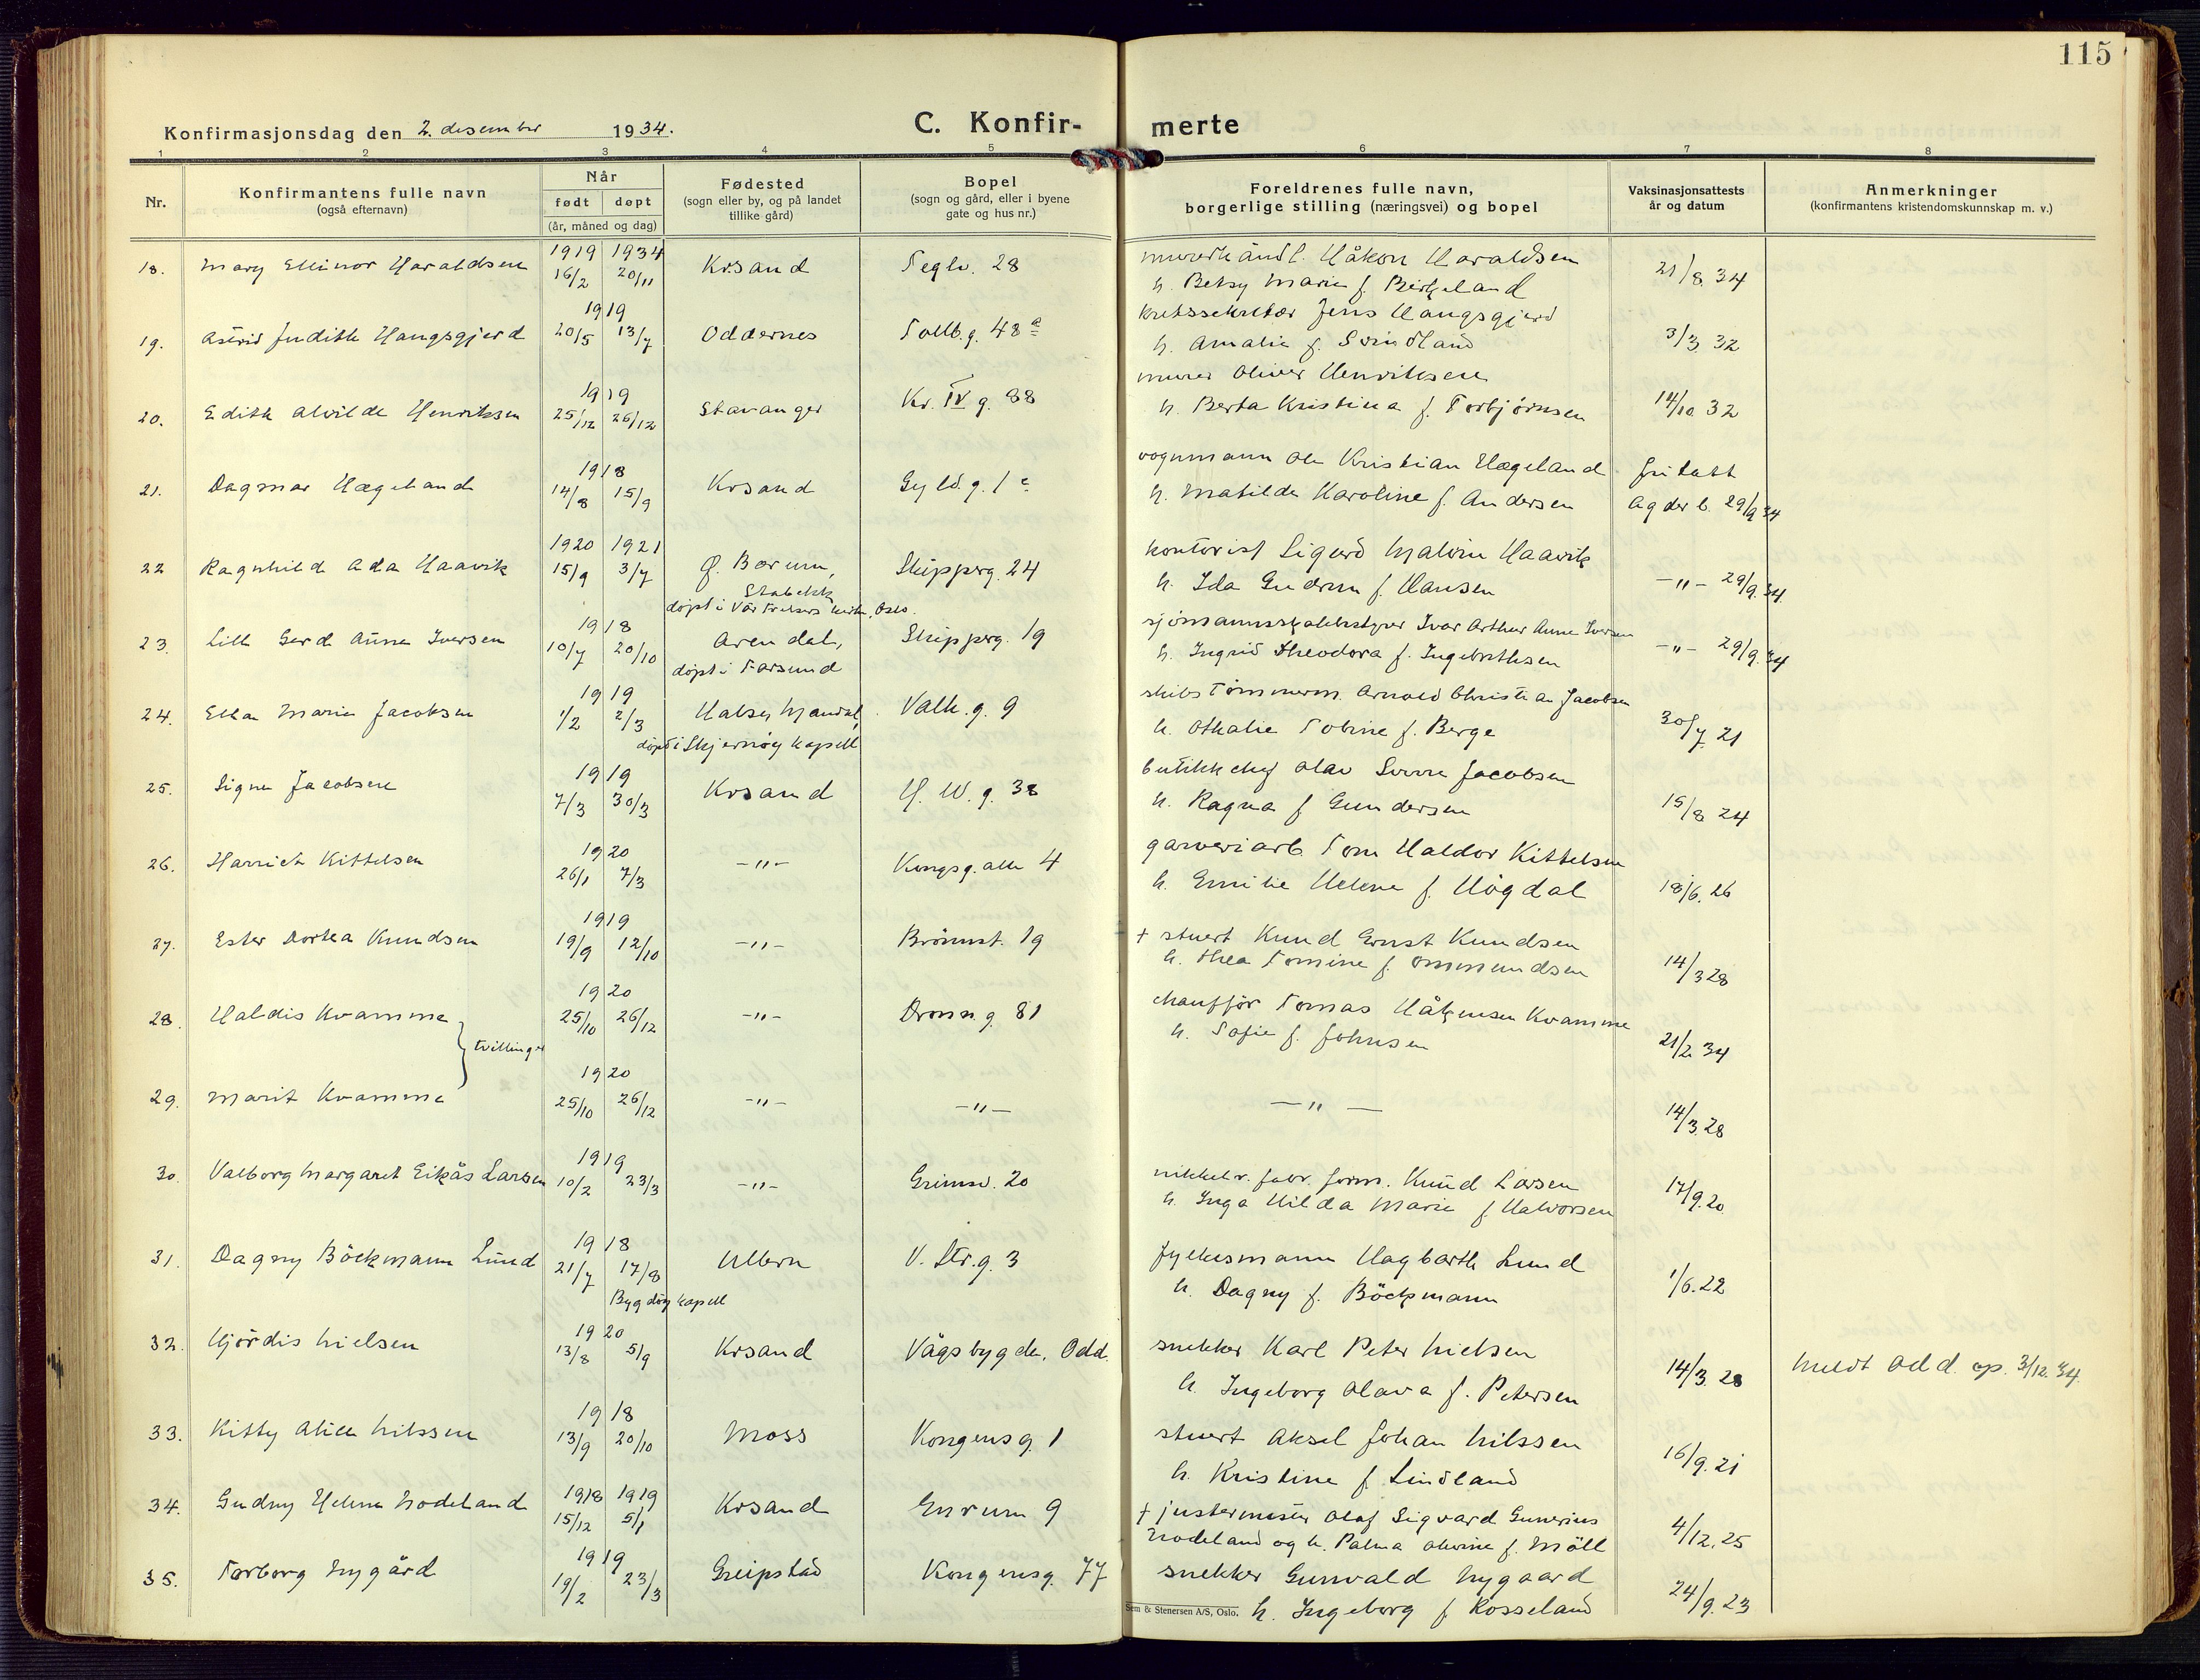 115
Konfirmasjonsdag den 2. desember 1934.
C. Konfir- merte
1 2 3 4 5 6 7 8
Nr.
Konfirmantens fulle navn
(også efternavn)
Når
født døpt
(år, måned og dag)
Fødested
(sogn eller by, og på landet
tillike gård)
Bopel
(sogn og gård, eller i byene
gate og hus nr.)
Foreldrenes fulle navn,
borgerlige stilling (næringsvei) og bopel
Vaksinasjonsattests
år og datum
Anmerkninger
(konfirmantens kristendomskunnskap m. v.)
1919 1934 Håkon Haraldsen
18. Mary Ellinor Haraldsen 16/2 20/11 Krsand Teglv. 28 h. Betsy Marie f. Birkeland 21/8 34
1919 kretssekretær Jens Haugsgjerd
19. Astrid Judith Haugsgjerd 20/5 13/7 Oddernes Tollb.g. 48 a h. Amalie f. Svindland 3/3 32
1919 murer Oliver Henriksen
20. Edith Alvilde Henriksen 25/12 26/12 Stavanger Kr. IV g. 88 h. Berta Kristina f. Torbjørnsen 14/10 32
1918 vognmann Ole Kristian Hægeland fritatt
21. Dagmar Hægeland 14/8 15/9 Krsand Gyld.g. 1 c h. Matilde Karoline f. Andersen Agder b. 29/9 34
1920 1921 kontorist Sigurd Hjalvin Haavik
22 Ragnhild Ada Haavik 15/9 3/7 Ø. Bærum, Skipperg. 24 h. Ida Gudrun f. Hansen -"- 29/9. 34
Stabekk
døpt i Vår Frelsers kirke, Oslo.
1918 Ivar Arthur Anne Iversen
23. Lill Gerd Anne Iversen 10/7 20/10 Arendal, Skipperg. 19 h. Ingrid Theodora f. Ingebrethsen -"- 29/9. 34
døpt i Farsund
1919 skibstømmerm. Arnold Christian Jacobsen
24. Ella Marie Jacobsen 1/2 2/3 Halsey Mandal, Valh.g. 9 h. Othalie Tobine f. Berge 30/7 21
døpt i Skjernøy kapell
1919 butikkchef Olav Sverre Jacobsen
25. Signe Jacobsen 7/3 30/3 Krsand H. W. g. 38 h. Ragna f Gundersen 15/8 24
1920 garveriarb Tom Haldor Kittelsen
26. Harriet Kittelsen 26/1 7/3 -"- Kongsg. alle 4 h. Emilie Helene f. Høgdal 18/6. 26
1919 + stuert Knud Ernst Knudsen
27. Ester Dortea Knudsen 19/9 12/10 -"- Brønnst. 19 h. Thea Tomine f. Ommundsen 14/3 28
1920 chauffør Tomas Håkensen Kvamme
28. Haldis Kvamme 25/10 26/12 -"- Dronn.g. 81 h. Sofie f. Johnsen 21/2 34
tvillinger
1920
29. Marit Kvamme 25/10 26/12 -"- -"- -"- 14/3. 28
1919 nikkelr. fabr. form. Knud Larsen
30. Valborg Margaret Eikås Larsen 10/2 23/3 -"- Grimsv. 20 h. Inga Hilda Marie f. Halvorsen 17/9. 20
1918 fylkesmann Hagbarth Lund
31. Dagny Böckmann Lund 21/7 17/8 Ullern V. Str.g. 3 h. Dagny f. Böckmann 1/6. 22
Bygdøy kapell
1920 snekker Karl Peter Nielsen
32. Hjördis Nielsen 13/8 5/9 Krsand Vågsbygda, Odd. h. Ingeborg Olava f. Petersen 14/3. 28 Meldt Odd. sp. 3/12. 34.
1918 stuert Aksel Johan Nilssen
33. Kitty Alice Nilssen 13/9 20/10 Moss Kongensg. 1 h. Kristine f Lindland 16/9. 21
1918 1919 + justermester Olaf Sigvard Gunerius
34. Gudny Helene Nodeland 15/12 5/1 Krsand Enrum 9 Nodeland og h. Palma Olvine f. Möll 4/12. 25
1919 snekker Gunvald Nygaard
35. Torborg Nygård 19/2 23/3 Greipstad Kongensg. 77 h. Ingeborg f Rosseland 24/9. 23
Sem & Stenersen A/S, Oslo.